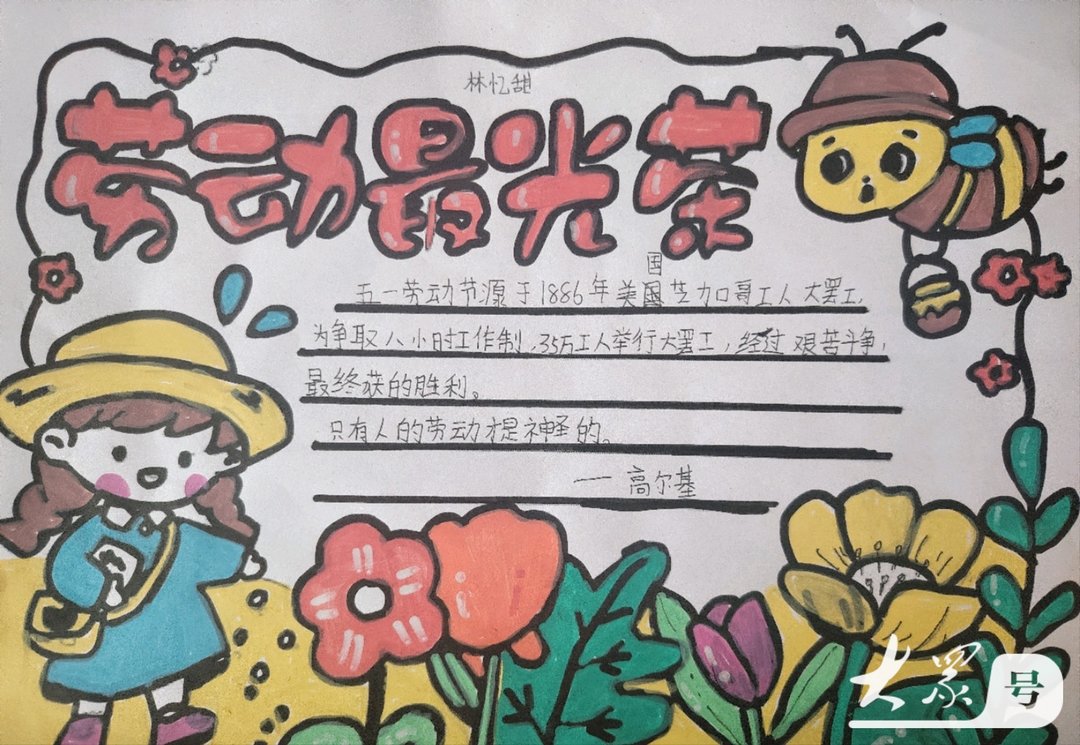 林忆甜
劳动最光荣
国
五一劳动节源于1886年美国芝加哥工人大罢工,
为争取八小时工作制,35万工人举行大罢工,经过艰苦斗争,
最终获的胜利。
只有人的劳动才是神圣的。
——高尔基
大众号